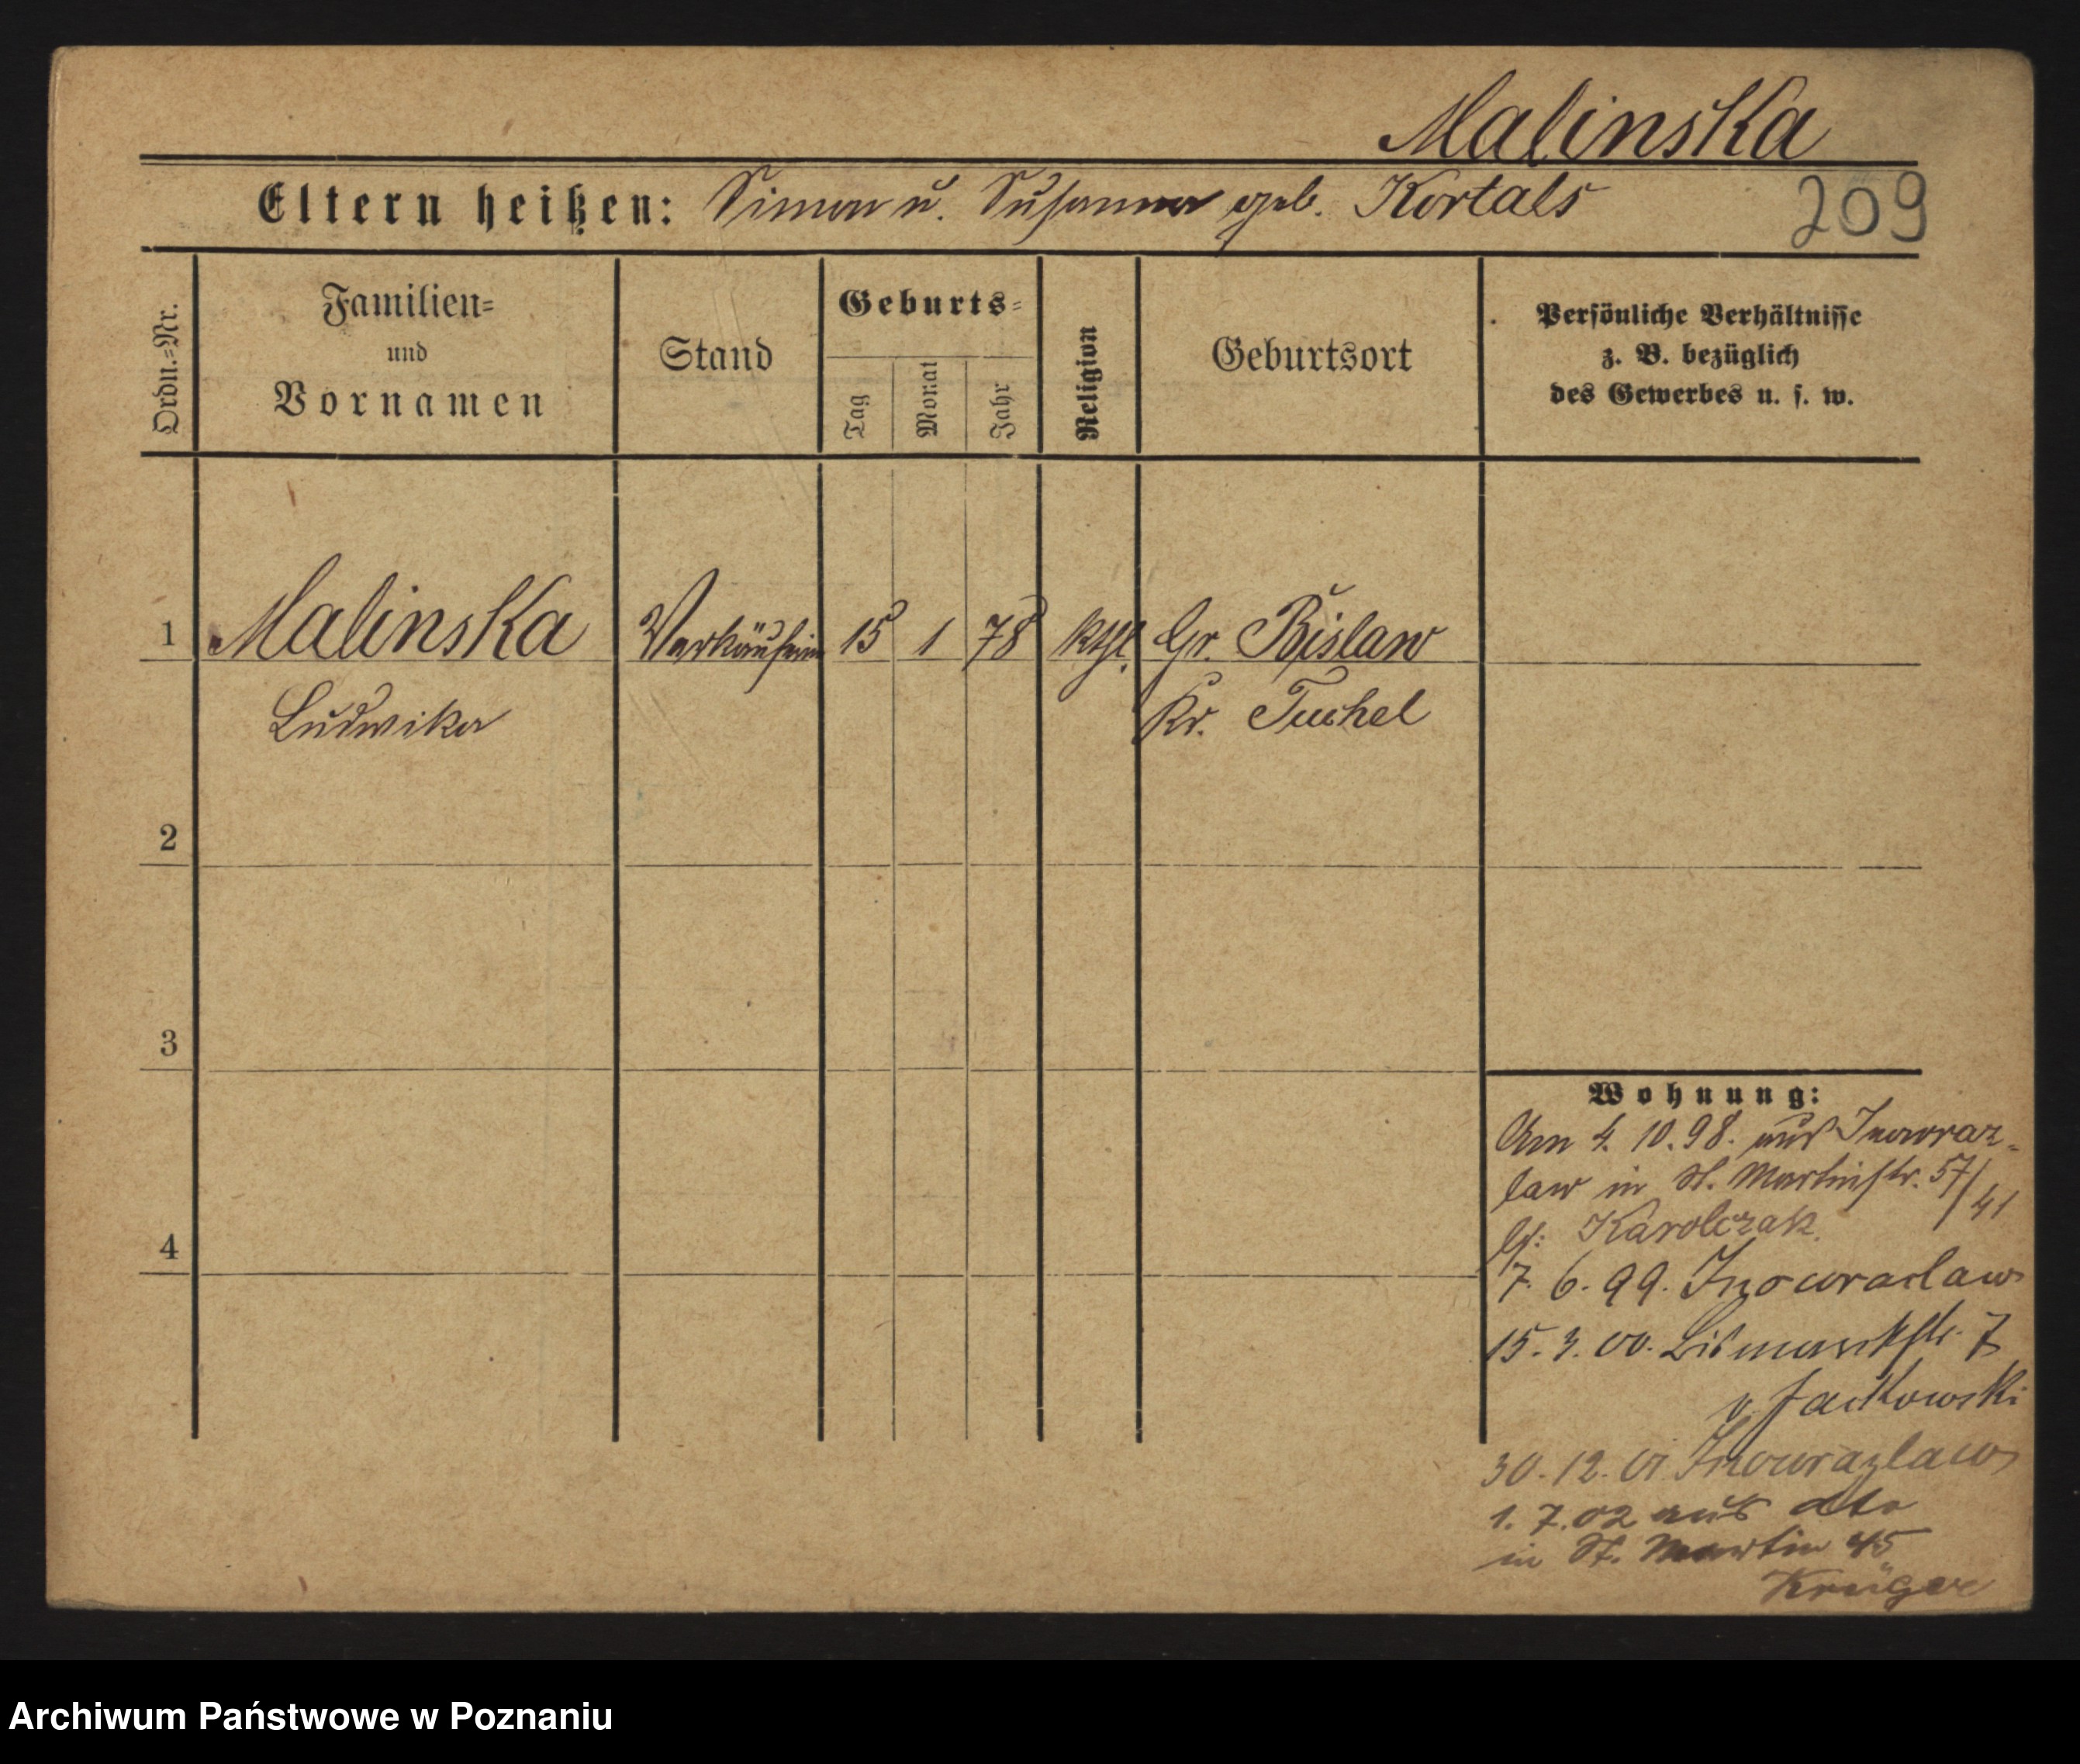 Malinska
Eltern heißen: Simon u. Susanna geb. Kortals
209
Ordn.=Nr.
Familien=
und
Vornamen
Stand
Geburts=
Tag
Monat
Jahr
Religion
Geburtsort
Persönliche Verhältnisse
z. B. bezüglich
des Gewerbes u. s. w.
1 Malinska Verkäuferin 15 1 78 kthl. Gr. Bislaw
Ludwika Kr. Tuchel
2
3
4
Wohnung:
Am 4. 10. 98. aus Inowraz-
law in St. Martinstr. 57/41
bei Karolczak.
7. 6. 99. Inowraclaw
15. 3. 00. Bismarckstr. 7
v. Jackowski
30. 12. 01 Inowrazlaw
1. 7. 02 aus dto
in St. Martin 45
Krüger
Archiwum Państwowe w Poznaniu